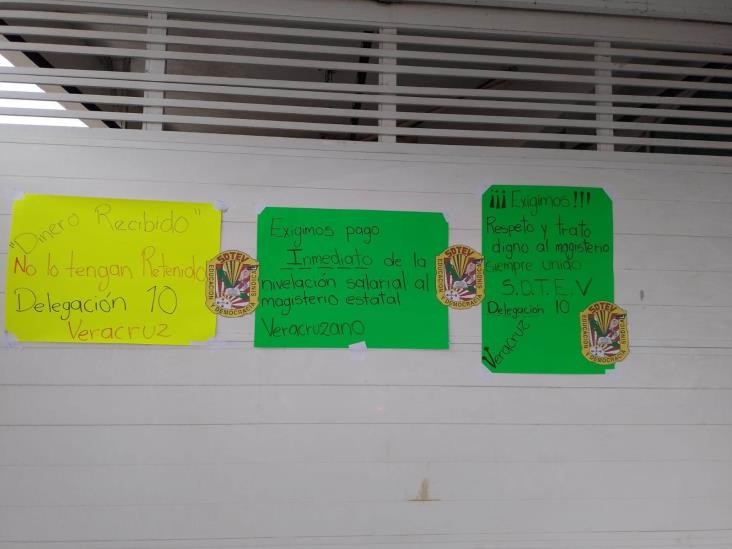 "Dinero Recibido"
No lo tengan Retenido
Delegación 10
Veracruz
SDTEV
EDUCACION Y DEMOCRACIA SINDICAL
Exigimos pago
Inmediato de la
nivelación salarial al
magisterio estatal
Veracruzano
SDTEV
EDUCACION Y DEMOCRACIA SINDICAL
¡¡¡Exigimos!!!
Respeto y trato
digno al magisterio
siempre unido
S.D.T.E.V
Delegación 10
Veracruz
SDTEV
EDUCACION Y DEMOCRACIA SINDICAL